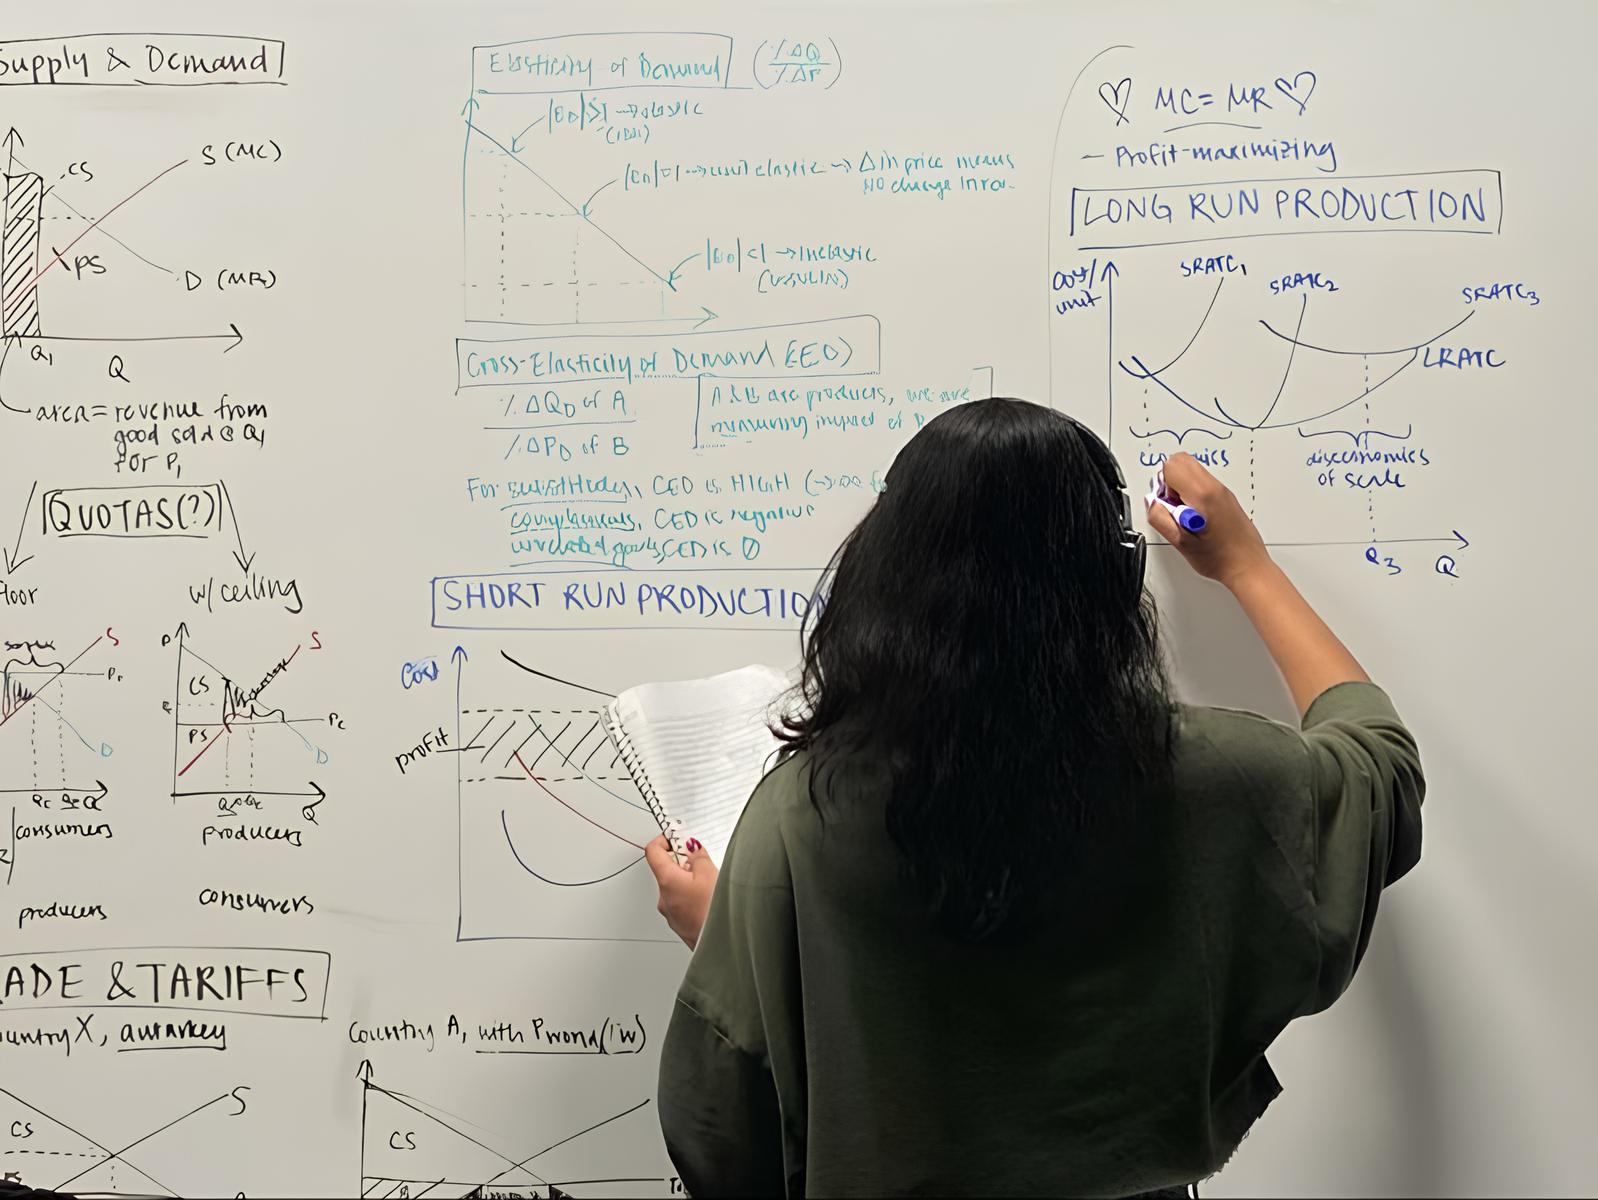 Supply & Demand
CS
S (MC)
PS
D (MR)
Q1
Q
area = revenue from
good sold @ Q1
for P1
QUOTAS(?)
w/ ceiling
S
Pf
D
Q
consumers
producers
P
S
CS
PS
Pc
D
Q
producers
consumers
ADE & TARIFFS
ountry X, autarkey
S
CS
Country A, with Pworld
CS
Elasticity of Demand (%ΔQ
%ΔP)
elastic
unit elastic → Δ in price means
NO change in rev.
<1 → inelastic
(insulin)
Cross-Elasticity of Demand
%ΔQD of A
%ΔPD of B
A & B are products, we are
measuring impact of
For substitutes, CED is HIGH
complements, CED is negative
unrelated goods, CED is 0
SHORT RUN PRODUCTIO
Cost
profit
♡ MC = MR ♡
- Profit-maximizing
LONG RUN PRODUCTION
cost/
unit
SRATC1
SRATC2
SRATC3
LRATC
diseconomies
of scale
Q3
Q